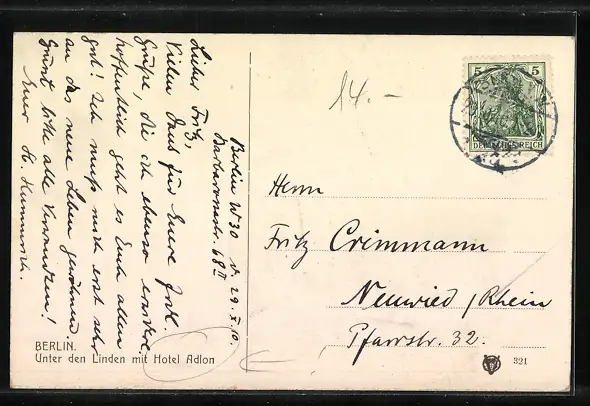 Berlin W 30 d. 29.X.10
Barbarossastr. 68 II
Lieber Fritz,
Vielen Dank für Euere Frdl.
Grüße, die ich ebenso erwidere
hoffentlich geht es Euch allen
gut! Ich muß mich erst sehr
an das neue Leben gewöhnen.
Grüßt bitte alle Verwandten!
Euer
14.-
5 5
DEUTSCHES REICH
Herrn
Fritz Crimmann
Neuwied / Rhein
Pfarrstr. 32.
BERLIN.
Unter den Linden mit Hotel Adlon
321